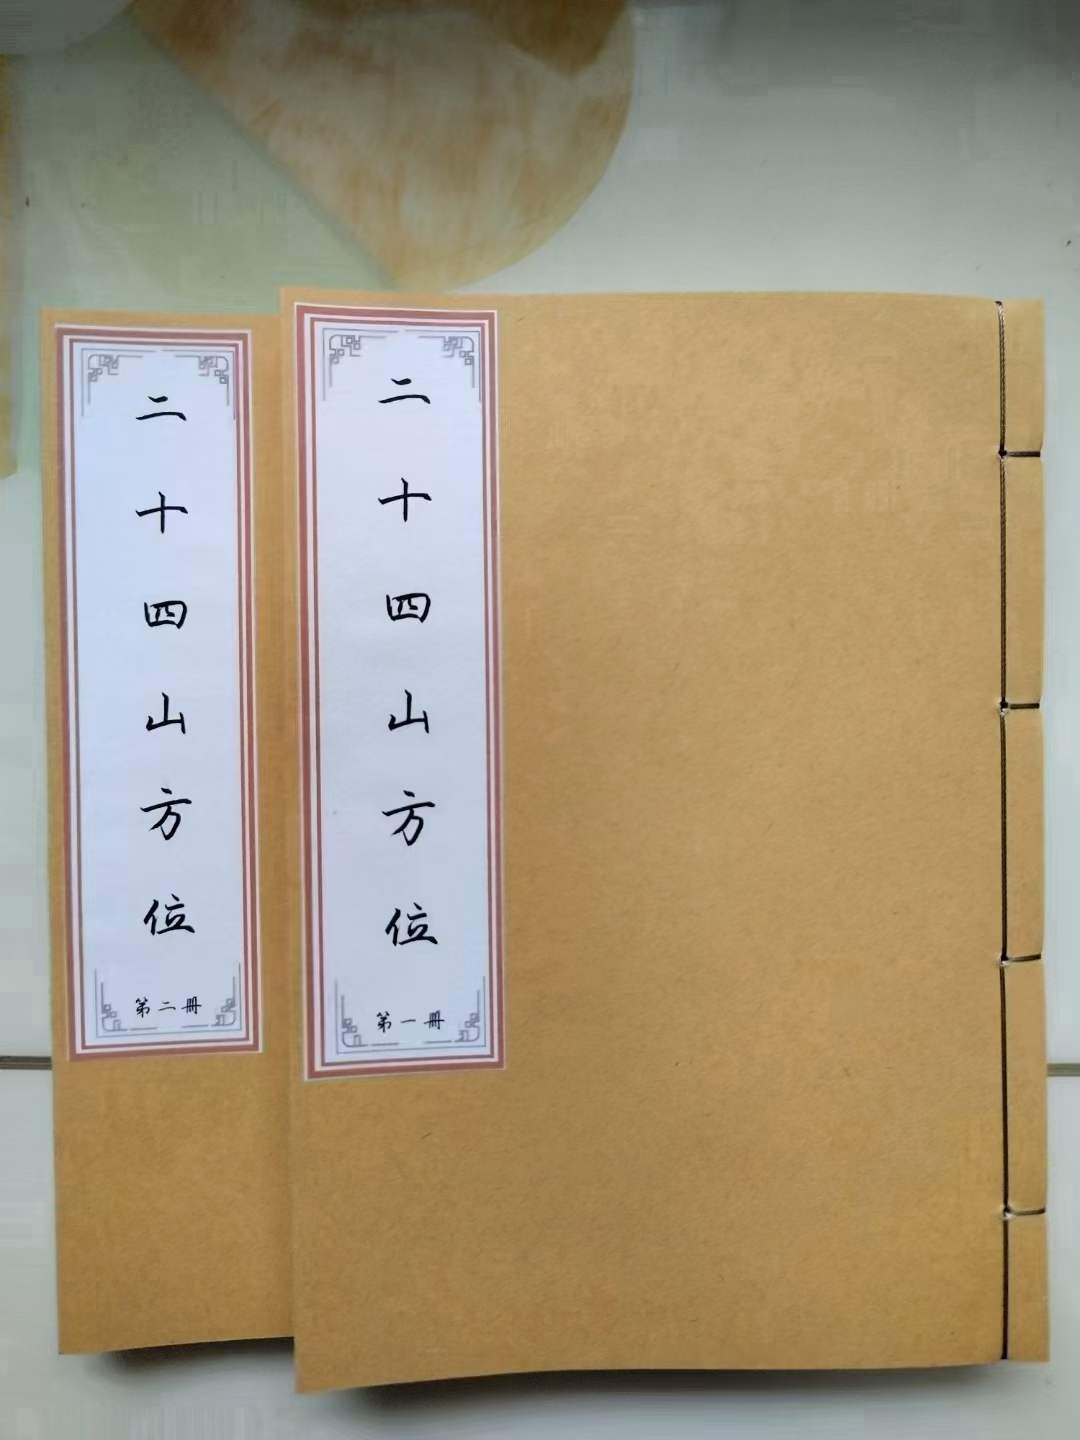 二十四山方位
第一册
二十四山方位
第二册